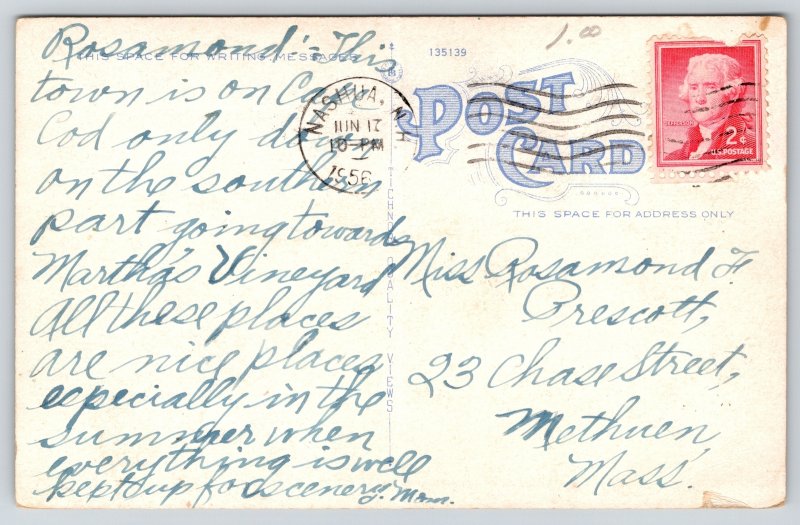 Rosamond:- This
THIS SPACE FOR WRITING MESSAGES
town is on Cape
Cod only down
on the southern
part going towards
Martha's Vineyard
All these places
are nice places
especially in the
summer when
everything is well
kept up for scenery. Mom.
TICHNOR QUALITY VIEWS
135139
1.00
POST
CARD
NASHUA, N.H.
JUN 17
10 PM
1956
JEFFERSON
2¢
U.S. POSTAGE
THIS SPACE FOR ADDRESS ONLY
Miss Rosamond F.
Prescott,
23 Chase Street,
Methuen,
Mass.